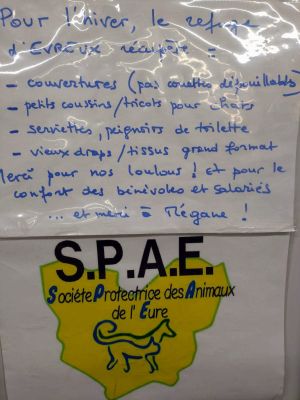 Pour l'hiver, le refuge
d'EVREUX récupère :
- couvertures (pas couettes dépouillables)
- petits coussins/tricots pour chats
- serviettes, peignoirs de toilette
- vieux draps/tissus grand format
Merci pour nos loulous ! Et pour le
confort des bénévoles et salariés
... et merci à Mégane !
S.P.A.E.
Société Protectrice des Animaux
de l'Eure